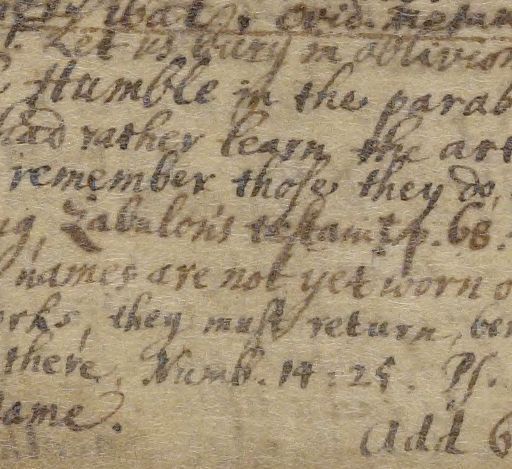 Let us bury in oblivion
Humble in the parab
had rather learn the art
remember those they do,
Zabulon's testamt p. 68.
names are not yet worn o
orks, they must return, ben
there, Numb. 14:25. Ps.
name.
Add 6